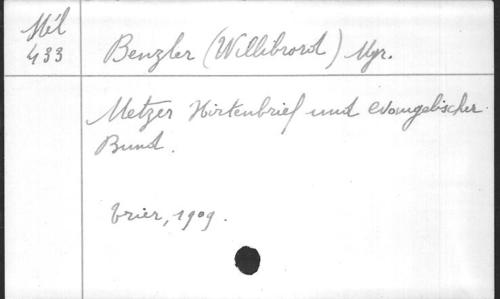 Mél
433
Benzler (Willibrord) Mgr.
Metzer Hirtenbrief und evangelischer
Bund.
Trier, 1909.